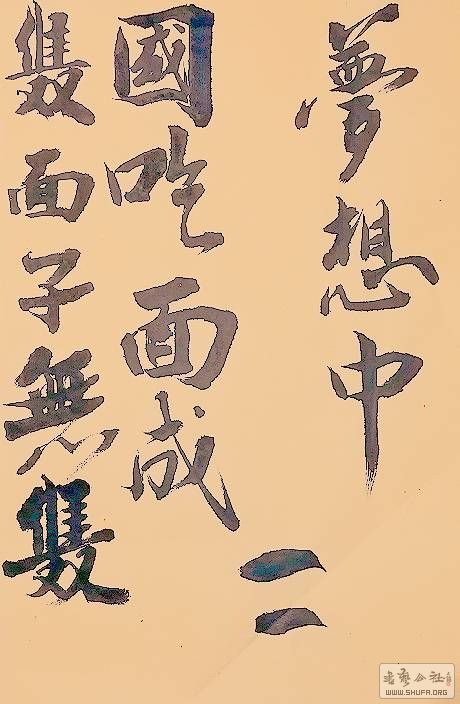 夢想中
二
國吃面成
雙面子無雙
书艺公社
WWW.SHUFA.ORG